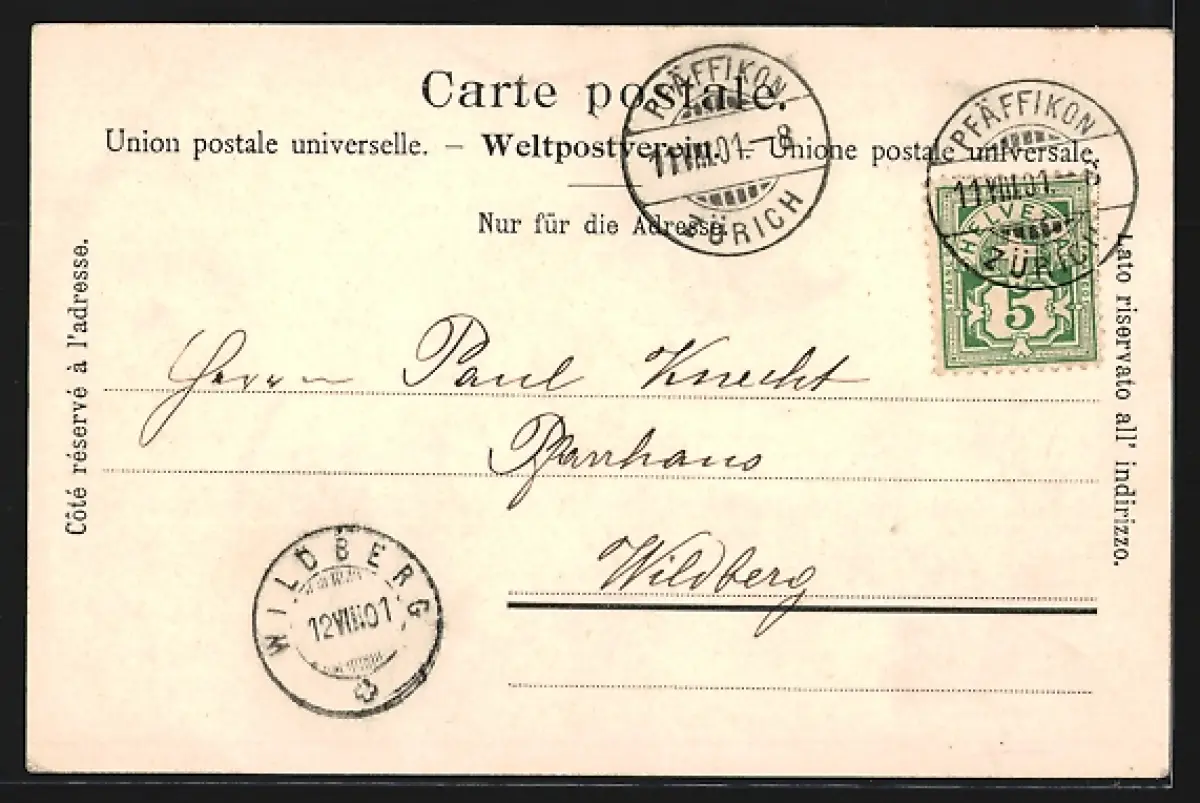 Carte postale.
Union postale universelle. – Weltpostverein. – Unione postale universale.
Nur für die Adresse.
PFÄFFIKON
11 VIII.01.–8
ZÜRICH
PFÄFFIKON
11 VIII.01. 8
ZÜRICH
HELVETIA
FRANCO
5
Côté réservé à l'adresse.
Lato riservato all' indirizzo.
Herrn Paul Knecht
Pfarrhaus
Wildberg
WILDBERG
12 VIII 01